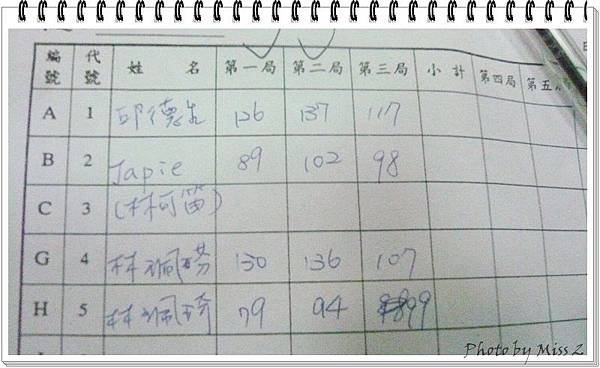 編號 代號 姓 名 第一局 第二局 第三局 小計 第四局 第五
A 1 邱德生 126 137 117
B 2 Japie 89 102 98
C 3 (林可笛)
G 4 林珮芬 130 136 107
H 5 林珮琦 79 94 99
Photo by Miss Z